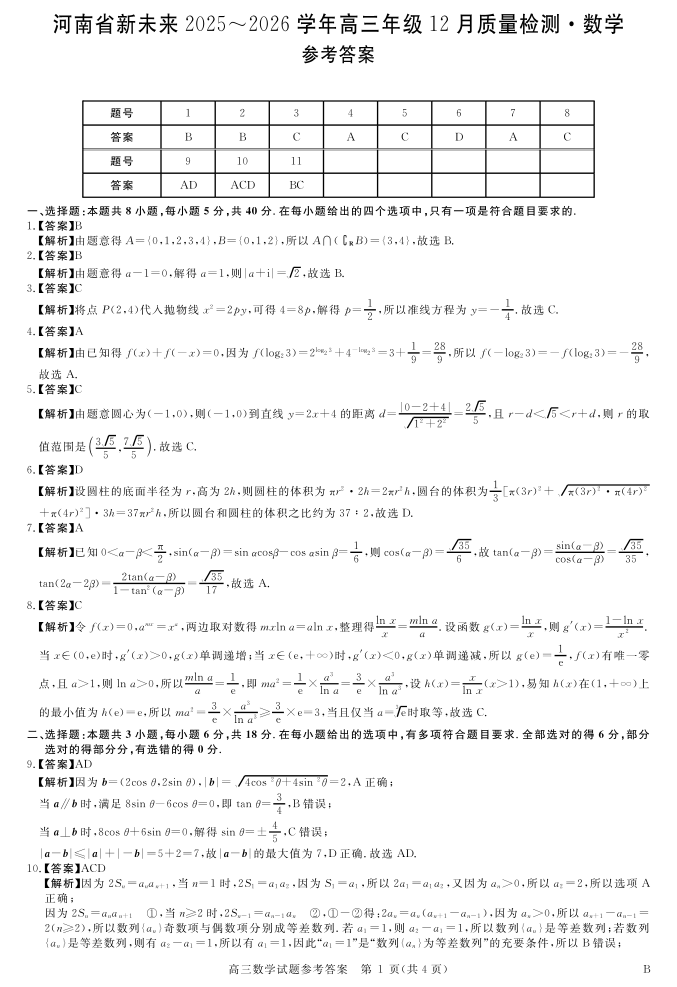 河南省新未来 2025～2026 学年高三年级 12 月质量检测·数学
参考答案
题号 1 2 3 4 5 6 7 8
答案 B B C A C D A C
题号 9 10 11
答案 AD ACD BC
一、选择题:本题共 8 小题,每小题 5 分,共 40 分.在每小题给出的四个选项中,只有一项是符合题目要求的.
1.【答案】B
【解析】由题意得 A={0,1,2,3,4},B={0,1,2},所以 A∩(∁RB)={3,4},故选 B.
2.【答案】B
【解析】由题意得 a−1=0,解得 a=1,则|a+i|=√2,故选 B.
3.【答案】C
【解析】将点 P(2,4)代入抛物线 x²=2py,可得 4=8p,解得 p=1/2,所以准线方程为 y=−1/4.故选 C.
4.【答案】A
【解析】由已知得 f(x)+f(−x)=0,因为 f(log₂3)=2^(log₂3)+4^(−log₂3)=3+1/9=28/9,所以 f(−log₂3)=−f(log₂3)=−28/9,
故选 A.
5.【答案】C
【解析】由题意圆心为(−1,0),则(−1,0)到直线 y=2x+4 的距离 d=|0−2+4|/√(1²+2²)=2√5/5,且 r−d<√5<r+d,则 r 的取
值范围是(3√5/5,7√5/5).故选 C.
6.【答案】D
【解析】设圆柱的底面半径为 r,高为 2h,则圆柱的体积为 πr²·2h=2πr²h,圆台的体积为1/3[π(3r)²+√(π(3r)²·π(4r)²)
+π(4r)²]·3h=37πr²h,所以圆台和圆柱的体积之比约为 37∶2,故选 D.
7.【答案】A
【解析】已知 0<α−β<π/2,sin(α−β)=sin αcosβ−cos αsin β=1/6,则 cos(α−β)=√35/6,故 tan(α−β)=sin(α−β)/cos(α−β)=√35/35,
tan(2α−2β)=2tan(α−β)/(1−tan²(α−β))=√35/17,故选 A.
8.【答案】C
【解析】令 f(x)=0,a^(mx)=x^a,两边取对数得 mxln a=aln x,整理得ln x/x=mln a/a.设函数 g(x)=ln x/x,则 g′(x)=(1−ln x)/x².
当 x∈(0,e)时,g′(x)>0,g(x)单调递增;当 x∈(e,+∞)时,g′(x)<0,g(x)单调递减,所以 g(e)=1/e,f(x)有唯一零
点,且 a>1,则 ln a>0,所以mln a/a=1/e,即 ma²=1/e×a³/ln a=3/e×a³/ln a³,设 h(x)=x/ln x(x>1),易知 h(x)在(1,+∞)上
的最小值为 h(e)=e,所以 ma²=3/e×a³/ln a³≥3/e×e=3,当且仅当 a=∛e时取等,故选 C.
二、选择题:本题共 3 小题,每小题 6 分,共 18 分.在每小题给出的选项中,有多项符合题目要求.全部选对的得 6 分,部分
选对的得部分分,有选错的得 0 分.
9.【答案】AD
【解析】因为 b=(2cos θ,2sin θ),|b|=√(4cos²θ+4sin²θ)=2,A 正确;
当 a∥b 时,满足 8sin θ−6cos θ=0,即 tan θ=3/4,B 错误;
当 a⊥b 时,8cos θ+6sin θ=0,解得 sin θ=±4/5,C 错误;
|a−b|≤|a|+|−b|=5+2=7,故|a−b|的最大值为 7,D 正确.故选 AD.
10.【答案】ACD
【解析】因为 2Sₙ=aₙaₙ₊₁,当 n=1 时,2S₁=a₁a₂,因为 S₁=a₁,所以 2a₁=a₁a₂,又因为 aₙ>0,所以 a₂=2,所以选项 A
正确;
因为 2Sₙ=aₙaₙ₊₁ ①,当 n≥2 时,2Sₙ₋₁=aₙ₋₁aₙ ②,①−②得:2aₙ=aₙ(aₙ₊₁−aₙ₋₁),因为 aₙ>0,所以 aₙ₊₁−aₙ₋₁=
2(n≥2),所以数列{aₙ}奇数项与偶数项分别成等差数列.若 a₁=1,则 a₂−a₁=1,所以数列{aₙ}是等差数列;若数列
{aₙ}是等差数列,则有 a₂−a₁=1,所以有 a₁=1,因此“a₁=1”是“数列{aₙ}为等差数列”的充要条件,所以 B 错误;
高三数学试题参考答案 第 1 页(共 4 页) B